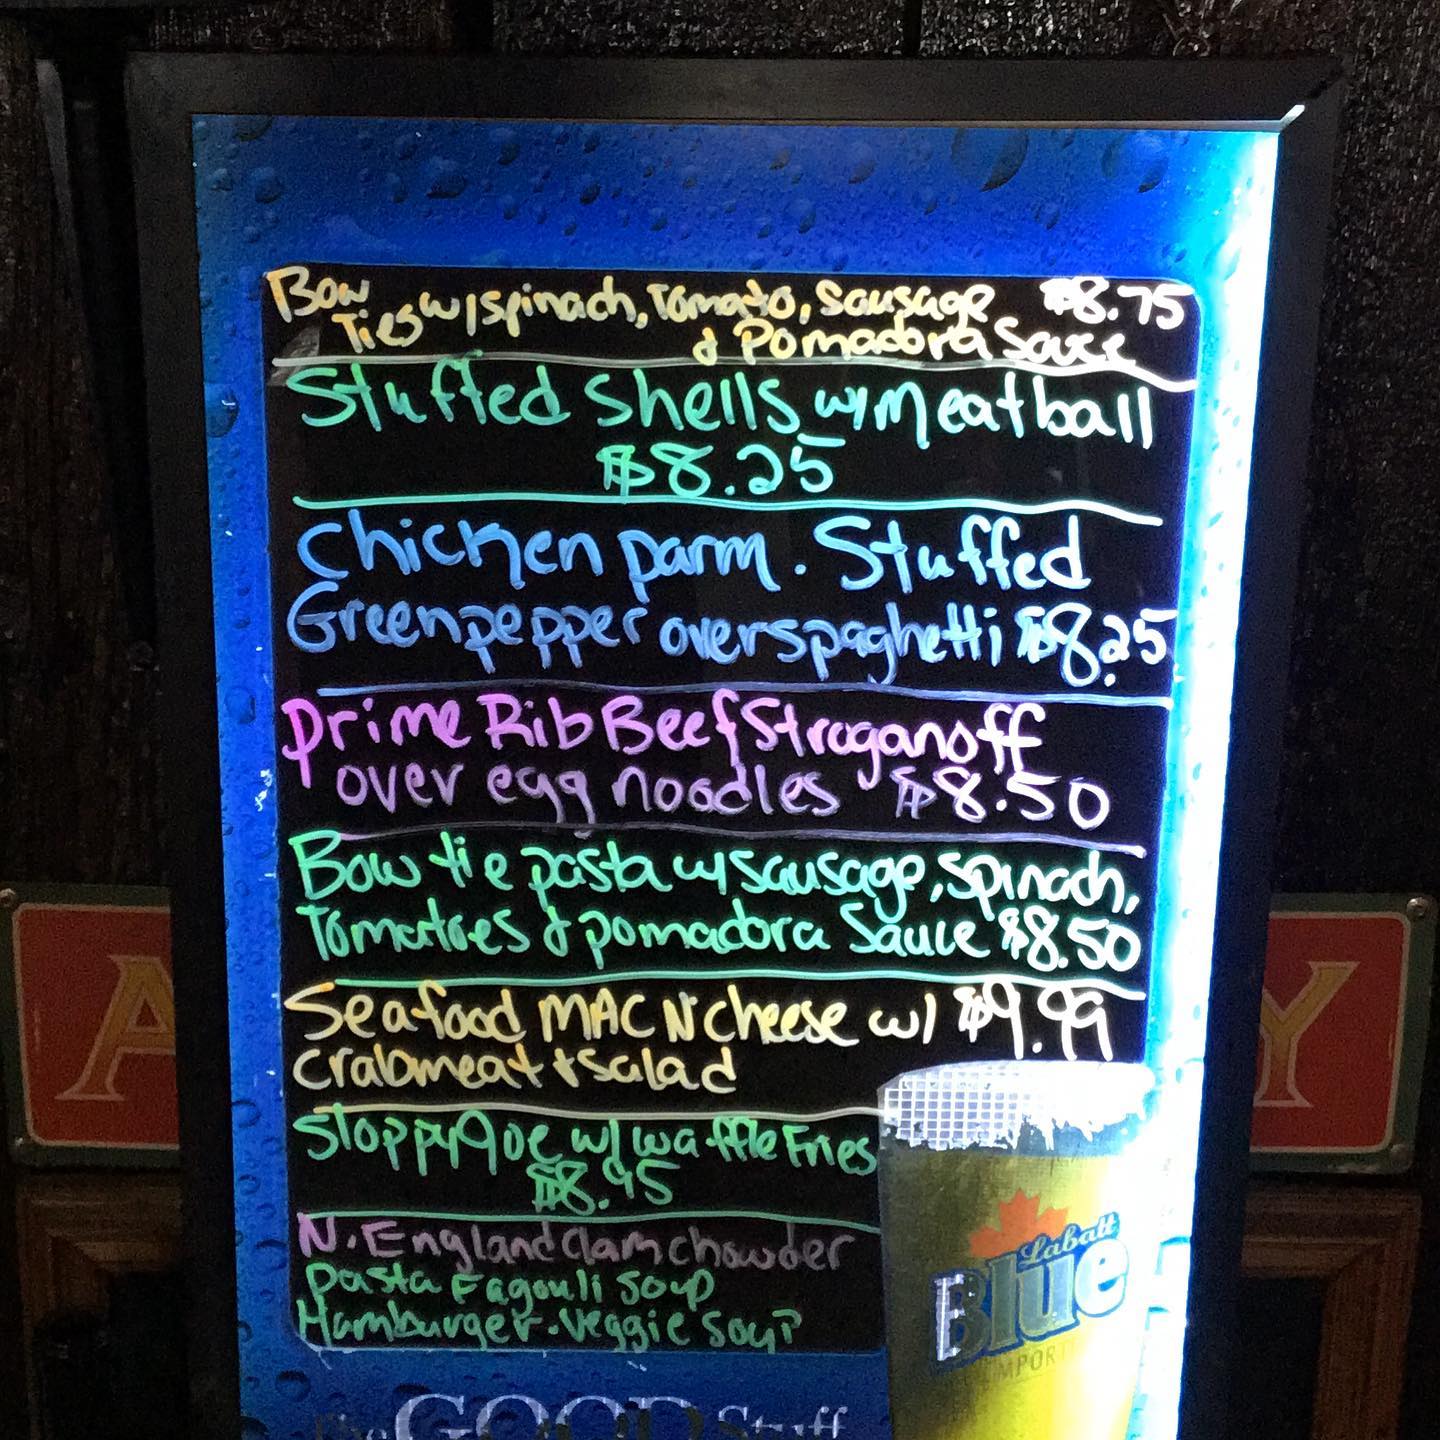 Bow Ties w/spinach, Tomato, Sausage $8.75
& Pomadora Sauce
Stuffed shells w/meatball
$8.25
Chicken parm. Stuffed
Green pepper over spaghetti $8.25
Prime Rib Beef Stroganoff
over egg noodles $8.50
Bow tie pasta w/ sausage, spinach,
Tomatoes & pomadora Sauce $8.50
Seafood MAC N' cheese w/ $9.99
crabmeat + salad
Sloppy Joe w/ waffle Fries
$8.95
N. England clam chowder
pasta Fagouli Soup
Hamburger-Veggie Soup
Labatt
Blue
IMPORT
The GOOD Stuff
A
Y